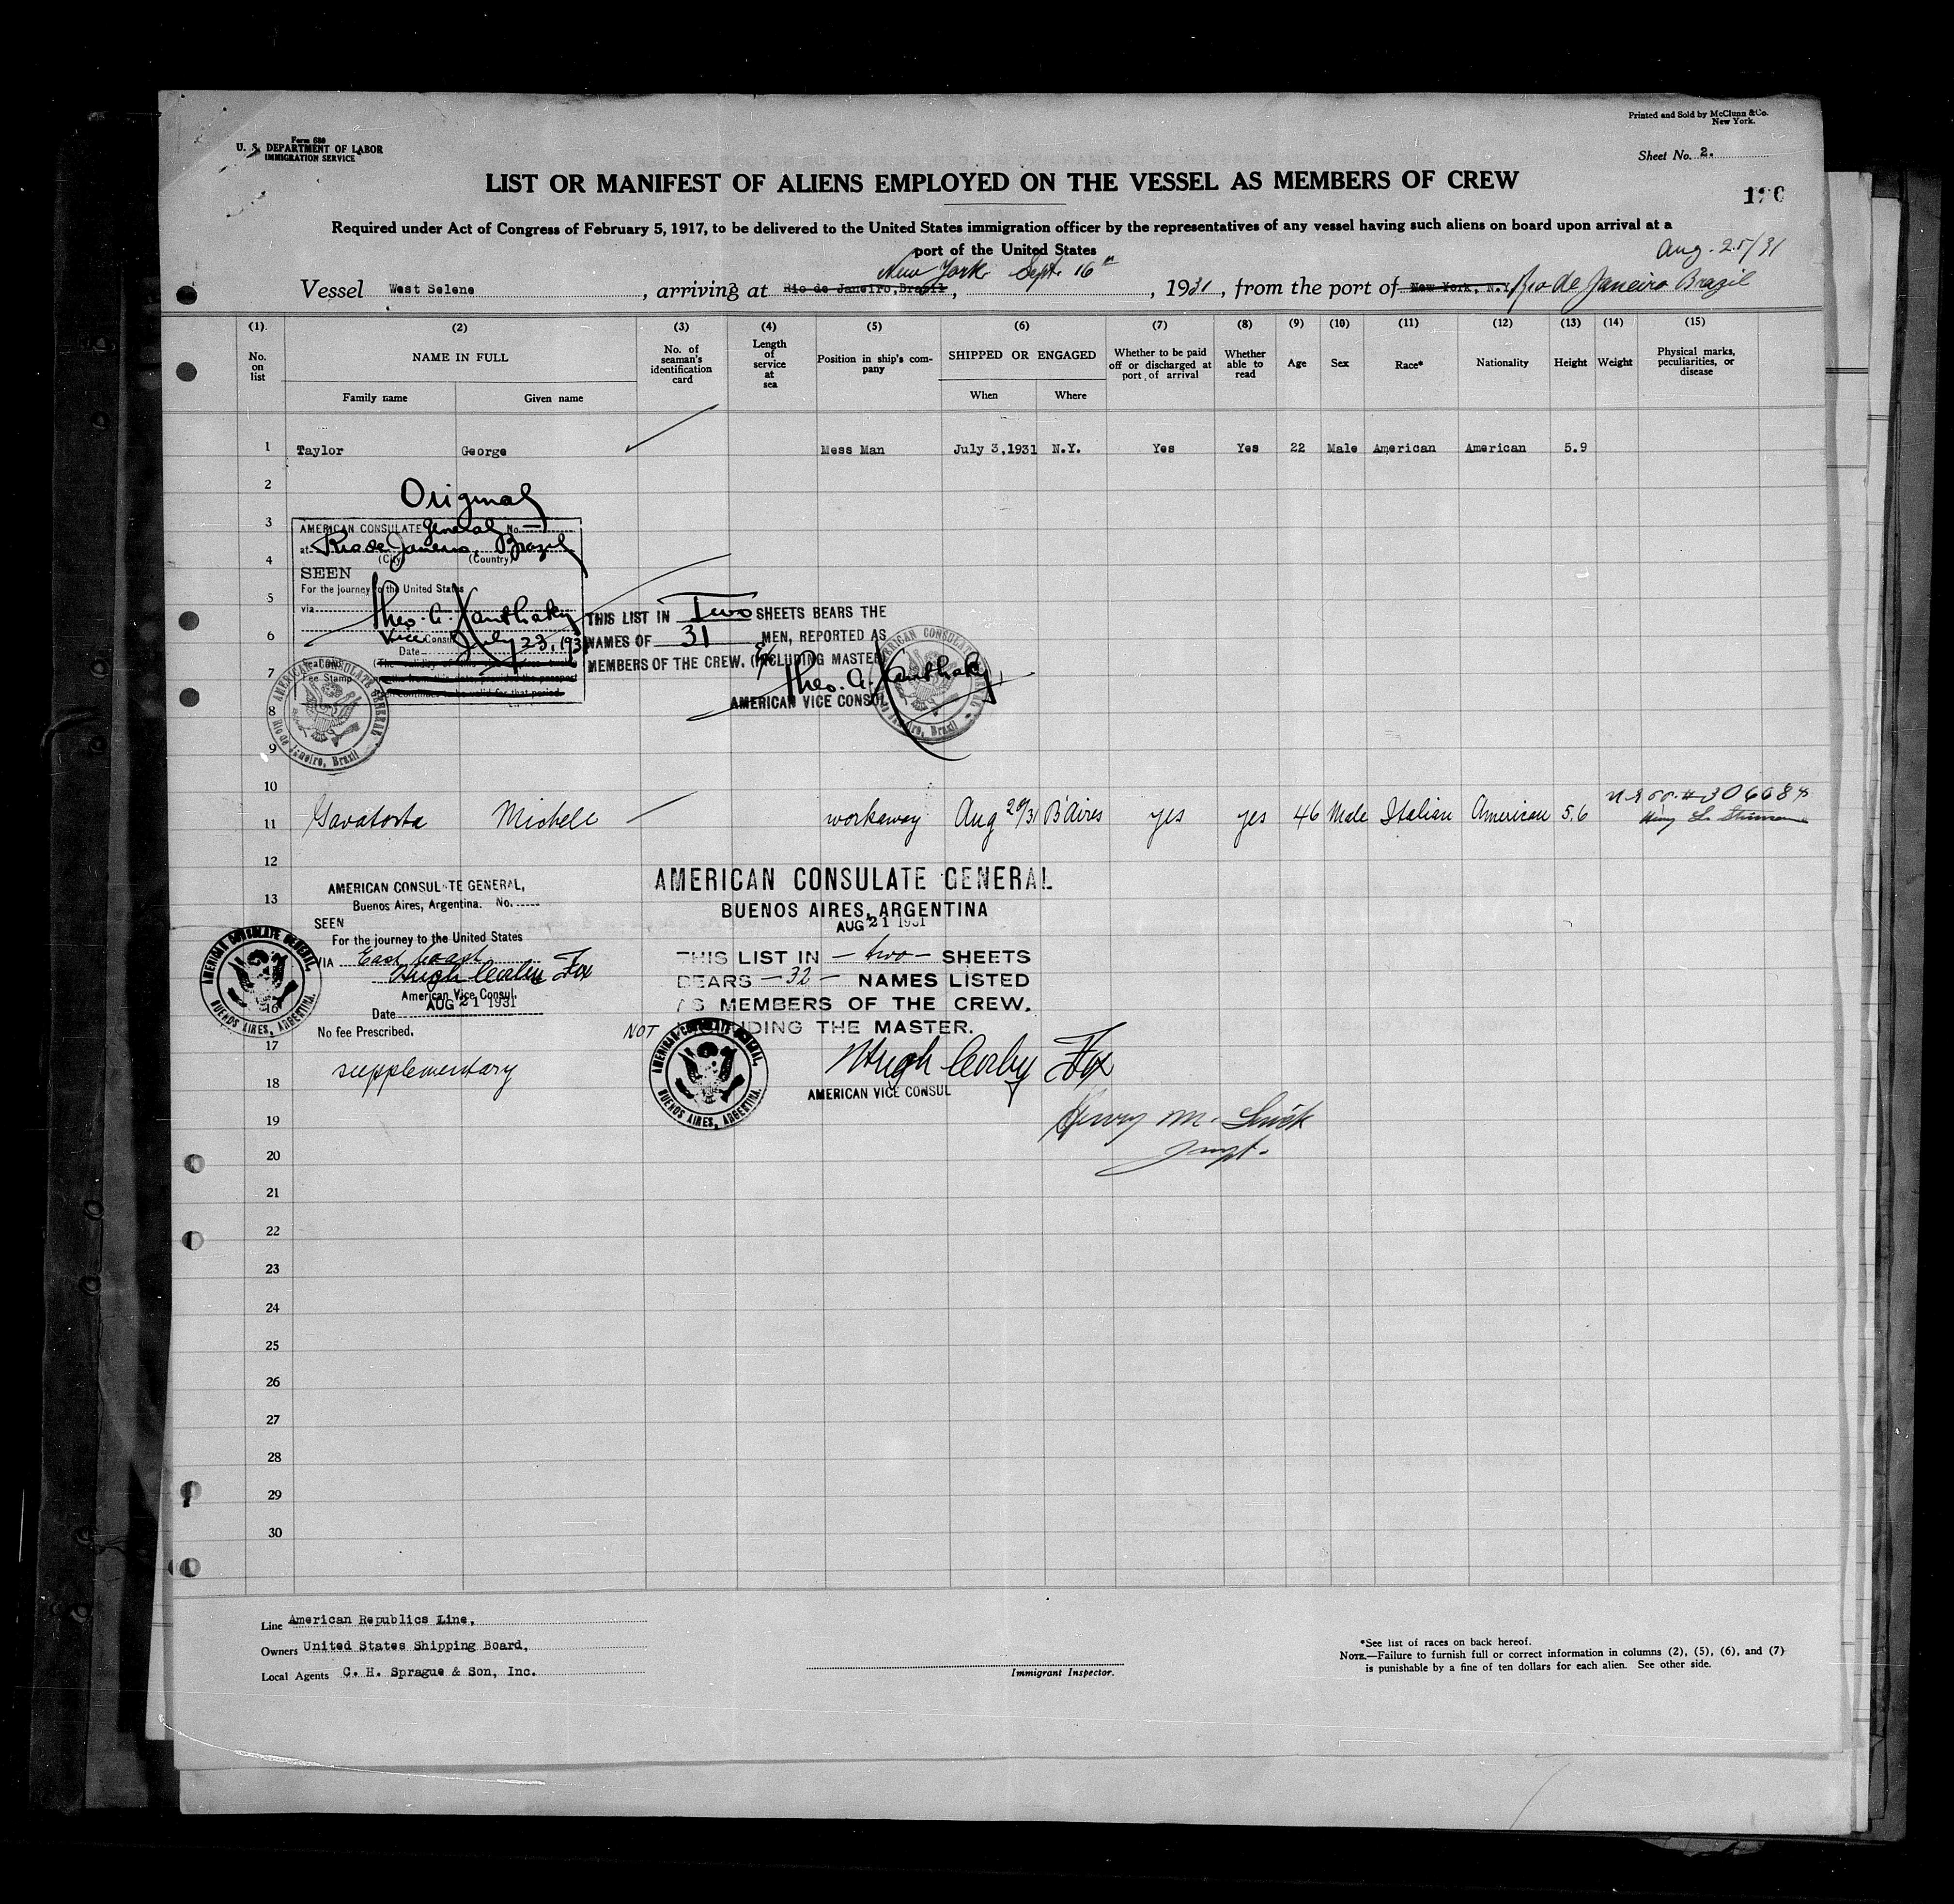 Form 680
U. S. DEPARTMENT OF LABOR
IMMIGRATION SERVICE
Printed and Sold by McClunn & Co.
New York.
Sheet No. 2.
LIST OR MANIFEST OF ALIENS EMPLOYED ON THE VESSEL AS MEMBERS OF CREW
Required under Act of Congress of February 5, 1917, to be delivered to the United States immigration officer by the representatives of any vessel having such aliens on board upon arrival at a
port of the United States
Aug. 25/31
New York Sept. 16th
Vessel West Selene, arriving at Rio de Janeiro, Brazil, 1931, from the port of New York, N.Y. Rio de Janeiro Brazil
(1) (2) (3) (4) (5) (6) (7) (8) (9) (10) (11) (12) (13) (14) (15)
No. on list
NAME IN FULL
Family name
Given name
No. of seaman's identification card
Length of service at sea
Position in ship's company
SHIPPED OR ENGAGED
When
Where
Whether to be paid off or discharged at port of arrival
Whether able to read
Age
Sex
Race*
Nationality
Height
Weight
Physical marks, peculiarities, or disease
1 Taylor George Mess Man July 3, 1931 N.Y. Yes Yes 22 Male American American 5.9
2
Original
3
AMERICAN CONSULATE General No.
at Rio de Janeiro, Brazil
(City) (Country)
4
SEEN
For the journey to the United States
5
via
Theo. A. Xanthaky
6
Vice Consul
Date July 23, 1931
7
Fee Stamp
8
AMERICAN CONSULATE GENERAL
Rio de Janeiro, Brazil
9
THIS LIST IN Two SHEETS BEARS THE
NAMES OF 31 MEN, REPORTED AS
MEMBERS OF THE CREW. (EXCLUDING MASTER)
Theo. A. Xanthaky
AMERICAN VICE CONSUL
10
11 Gavatorta Michele workaway Aug 20/31 B'Aires yes yes 46 Male Italian American 5.6
12
13
AMERICAN CONSULATE GENERAL,
Buenos Aires, Argentina. No.
SEEN
For the journey to the United States
VIA East Coast
Hugh Corby Fox
American Vice Consul.
Date AUG 21 1931
No fee Prescribed.
AMERICAN CONSULATE GENERAL,
BUENOS AIRES, ARGENTINA.
16
supplementary
AMERICAN CONSULATE GENERAL
BUENOS AIRES, ARGENTINA
AUG 21 1931
THIS LIST IN - two - SHEETS
BEARS - 32 - NAMES LISTED
AS MEMBERS OF THE CREW,
NOT INCLUDING THE MASTER.
Hugh Corby Fox
AMERICAN VICE CONSUL
AMERICAN CONSULATE GENERAL,
BUENOS AIRES, ARGENTINA.
17
18
19
20
21
22
23
24
25
26
27
28
29
30
Line American Republics Line,
Owners United States Shipping Board,
Local Agents C. H. Sprague & Son, Inc.
Immigrant Inspector.
*See list of races on back hereof.
NOTE.—Failure to furnish full or correct information in columns (2), (5), (6), and (7)
is punishable by a fine of ten dollars for each alien. See other side.